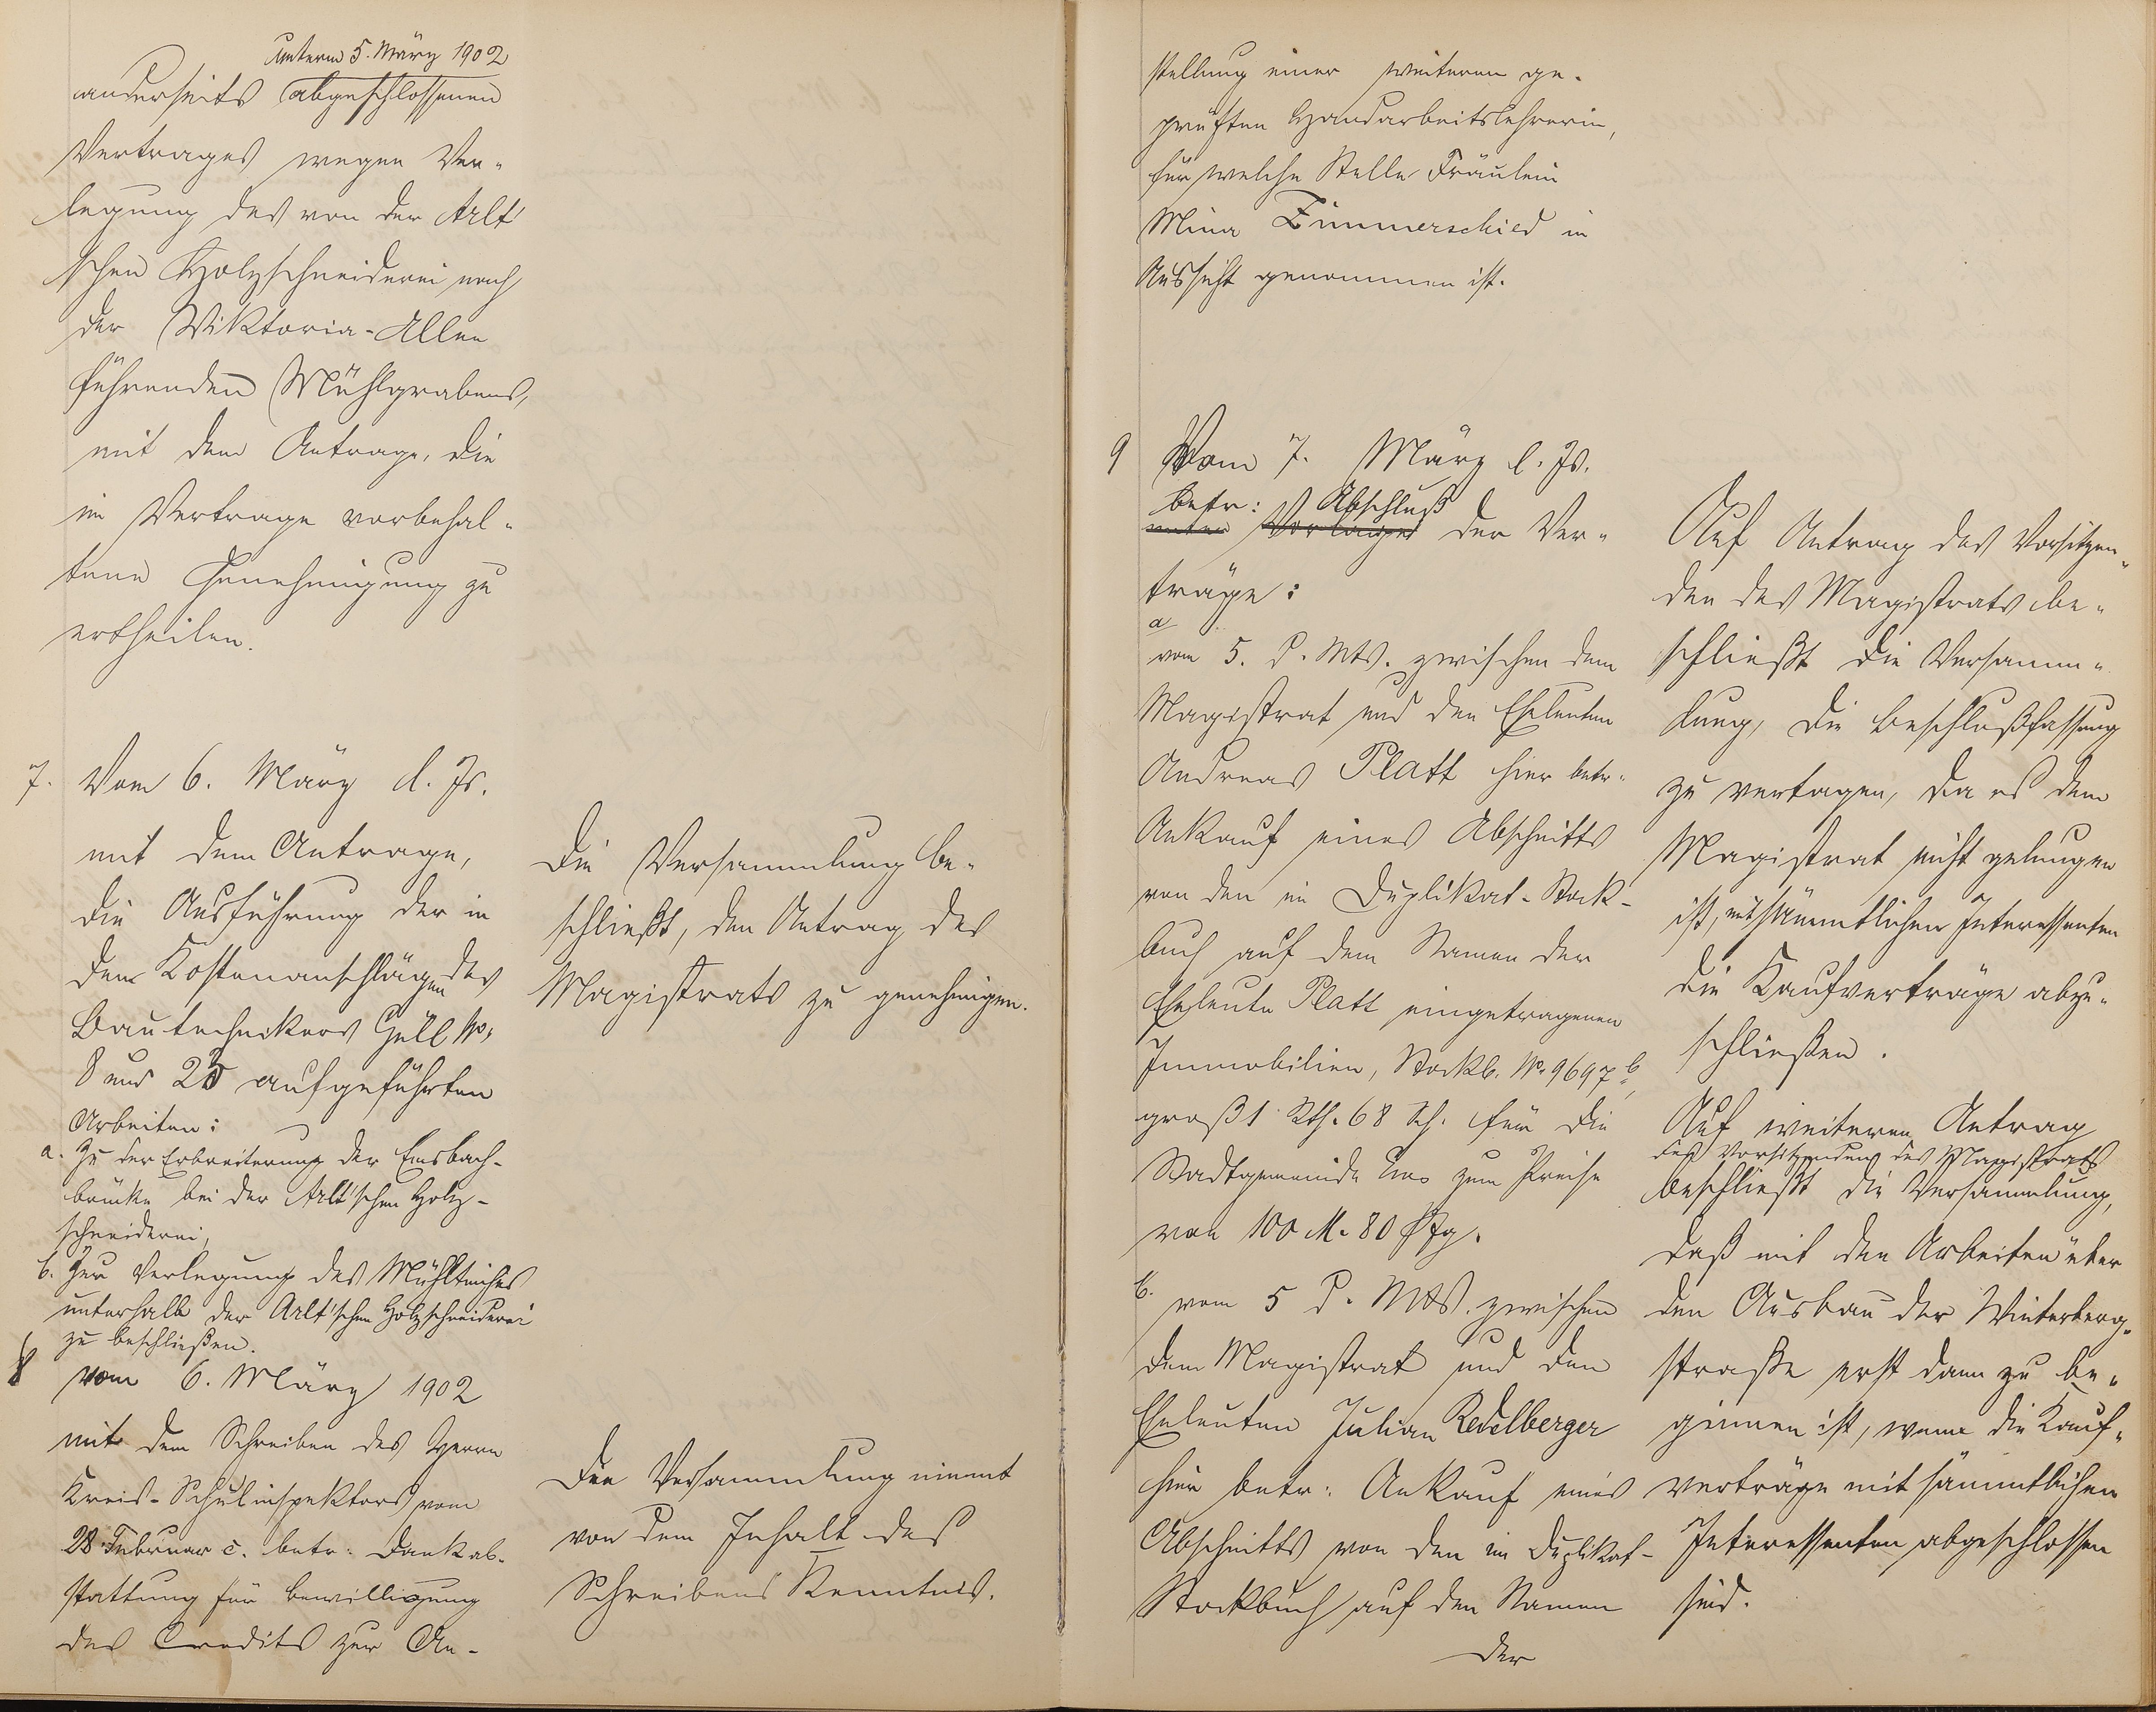 unterm 5. März 1902
anderseits abgeschlossenen
Vertrages wegen Ver-
legung des von der Arlt'
schen Holzschneiderei nach
der Viktoria-Allee
führenden Mühlgrabens,
mit dem Antrage, die
im Vertrage vorbehal-
tene Genehmigung zu
ertheilen.
7. Vom 6. März d. Js.
mit dem Antrage,
die Ausführung der in
den Kostenanschlägen des
Bautechnikers Güll No.
8 und 25 aufgeführten
Arbeiten:
a. Zu der Erbreiterung der Emsbach-
brücke bei der Arlt'schen Holz-
schneiderei,
b. Zur Verlegung des Mühlteiches
unterhalb der Arlt'schen Holzschneiderei
zu beschließen.
Die Versammlung be-
schließt, den Antrag des
Magistrats zu genehmigen.
8 Vom 6. März 1902
mit dem Schreiben des Herrn
Kreis-Schulinspektors vom
28. Februar c. betr. Dankab-
stattung für Bewilligung
des Credits zur An-
Die Versammlung nimmt
von dem Inhalt des
Schreibens Kenntnis.
stellung einer weiteren ge-
prüften Handarbeitslehrerin,
für welche Stelle Fräulein
Mina Zimmerschied in
Aussicht genommen ist.
9 Vom 7. März l. Js.
betr: Abschluß
unter Vorlage der Ver-
träge:
a
vom 5. d. Mts. zwischen dem
Magistrat und den Eheleuten
Andreas Platt hier betr.
Ankauf eines Abschnitts
von den im Duplikat-Stock-
buch auf dem Namen der
Eheleute Platt eingetragenen
Immobilien, Stockb. No. 9697 b,
groß 1 Rth. 68 Sch. für die
Stadtgemeinde Ems zum Preise
von 100 M. 80 Pfg.
b. vom 5 d. Mts. zwischen
dem Magistrat und den
Eheleuten Julian Redelberger
hier betr: Ankauf eines
Abschnitts von den im Duplikat-
Stockbuch auf den Namen
der
Auf Antrag des Vorsitzen-
den des Magistrats be-
schließt die Versamm-
lung, die Beschlußfassung
zu vertagen, da es dem
Magistrat nicht gelungen
ist, mit sämmtlichen Interessenten
die Kaufverträge abzu-
schließen.
Auf weiteren Antrag
des Vorsitzenden des Magistrats
beschließt die Versammlung,
daß mit den Arbeiten über
den Ausbau der Winterberg-
straße erst dann zu be-
ginnen ist, wenn die Kauf-
verträge mit sämmtlichen
Interessenten abgeschlossen
sind.